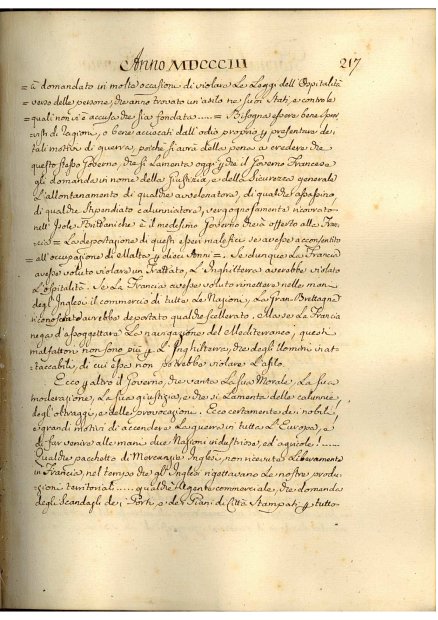 Anno MDCCCIII 217
= ü domandato in molte occasioni di violare Le Leggi dell'Ospitalità
= verso delle persone, che anno trovato un'asilo ne' suoi Stati, e contro le
= quali non vi è accusa che sia fondata ..... = Bisogna essere bene spro=
visti di ragione, o bene acciecati dall'odio proprio
tali motivi di guerra, poichè si avrà della pena a credere che
questo stesso Governo, che si lamenta oggi che il Governo Francese
gli domanda in nome della Giustizia, e della Sicurezza generale
L'allontanamento di qualche avvelenatore, di qualche assassino
di qualche Stipendiato calunniatore, vergognosamente ricovrato
nell'Isole Brittaniche è il medesimo Governo che à offerto alla Fran
cia = La deportazione di questi esseri malefici se avesse acconsentito
= all'occupazione di Malta dieci Anni =. Se dunque La Francia
avesse voluto violare un Trattato, L'Inghilterra averebbe violato
L'ospitalità. Se La Francia avesse voluto rimettere nelle mani
degl'Inglesi il commercio di tutte Le Nazioni, La Gran Brettagna
averebbe deportato qualche scellerato. Ma se La Francia
nega d'assoggettare La navigazione del Mediterraneo, questi
malfattori non sono più L'Inghilterra, che degli Uomini inat=
taccabili, di cui essa non potrebbe violare L'asilo.
Ecco il Governo, che vanta La Sua Morale, La Sua
moderazione, La Sua giustizia, e che si Lamenta delle calunnie,
degl'oltraggi, e delle provocazioni. Ecco certamente de' nobili,
e grandi motivi di accendere La guerra in tutta L'Europa, e
di far venire alle mani due Nazioni industriose, ed agricole! .....
Qualche pacchetto di Mercanzie Inglesi, non ricevuto Liberamente
in Francia, nel tempo che gl'Inglesi rigettavano Le nostre produ=
zioni territoriali ..... qualche Agente commerciale, che domanda
degli Scandagli de' Porti, e de' Piani di Città Stampati tutto=